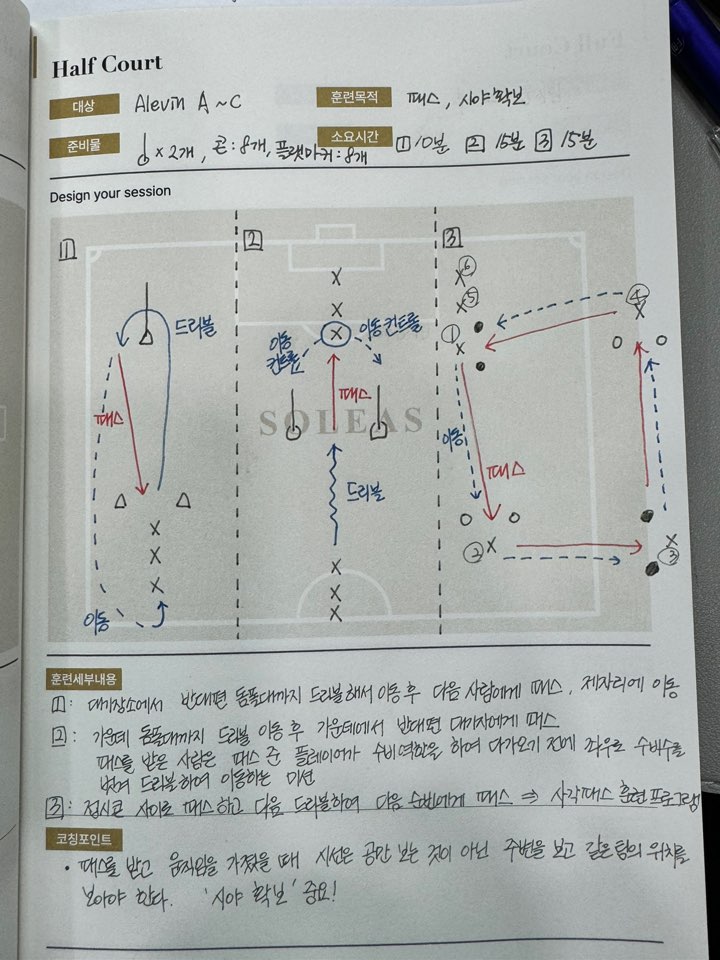 Half Court
대상 Alevin A ~ C
훈련목적 패스, 시야 확보
준비물 × 2개, 콘 : 8개, 플랫마커 : 8개
소요시간 1 10분 2 15분 3 15분
Design your session
1
드리블
패스
이동
2
X
X
X
이동 컨트롤
이동 컨트롤
패스
드리블
X
X
X
3
X ⑥
X ⑤
① X
④
X
이동
패스
② X
X
③
X
X
X
SOLEAS
훈련세부내용
1 : 대기장소에서 반대편 돔폴대까지 드리블해서 이동 후 다음 사람에게 패스, 제자리에 이동
2 : 가운데 돔폴대까지 드리블 이동 후 가운데에서 반대편 대기자에게 패스
패스를 받은 사람은 패스 준 플레이어가 수비역할을 하여 다가오기 전에 좌우로 수비수를
벗겨 드리블하여 이동하는 미션
3 : 접시콘 사이로 패스하고 다음 드리블하여 다음 순번에게 패스 ⇒ 사각패스 훈련 프로그램
코칭포인트
• 패스를 받고 움직임을 가졌을 때 시선은 공만 보는 것이 아닌 주변을 보고 같은 팀의 위치를
보아야 한다. '시야 확보' 중요!